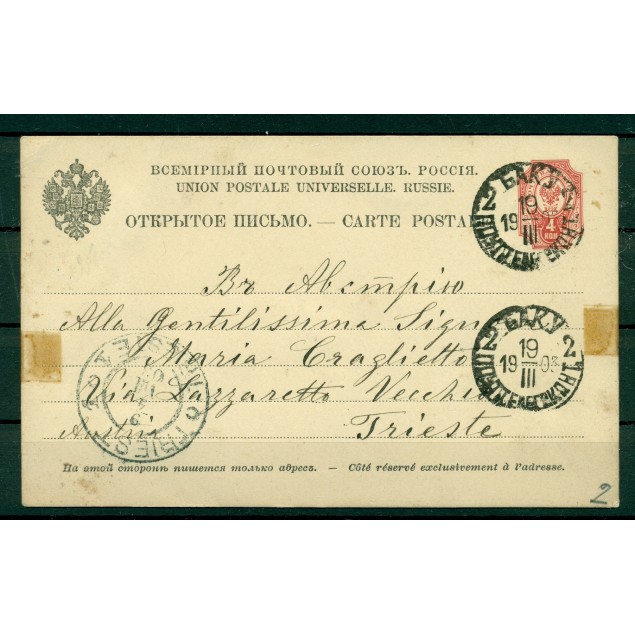 ВСЕМІРНЫЙ ПОЧТОВЫЙ СОЮЗЪ. РОССІЯ.
UNION POSTALE UNIVERSELLE. RUSSIE.
ОТКРЫТОЕ ПИСЬМО. — CARTE POSTA
4 КОП
2 БАКУ 2
19
III
19
Въ Австрію
Alla Gentilissima Sign
Maria Craglietto
Via Lazzaretto Vecchio
Austria
Trieste
2 БАКУ 2
19
III
19 03
TRIEST
На этой сторонѣ пишется только адресъ. — Côté réservé exclusivement à l'adresse.
2